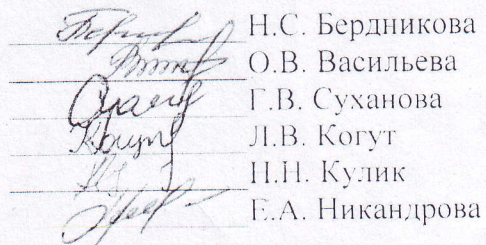 Н.С. Бердникова
О.В. Васильева
Г.В. Суханова
Л.В. Когут
Н.Н. Кулик
Е.А. Никандрова